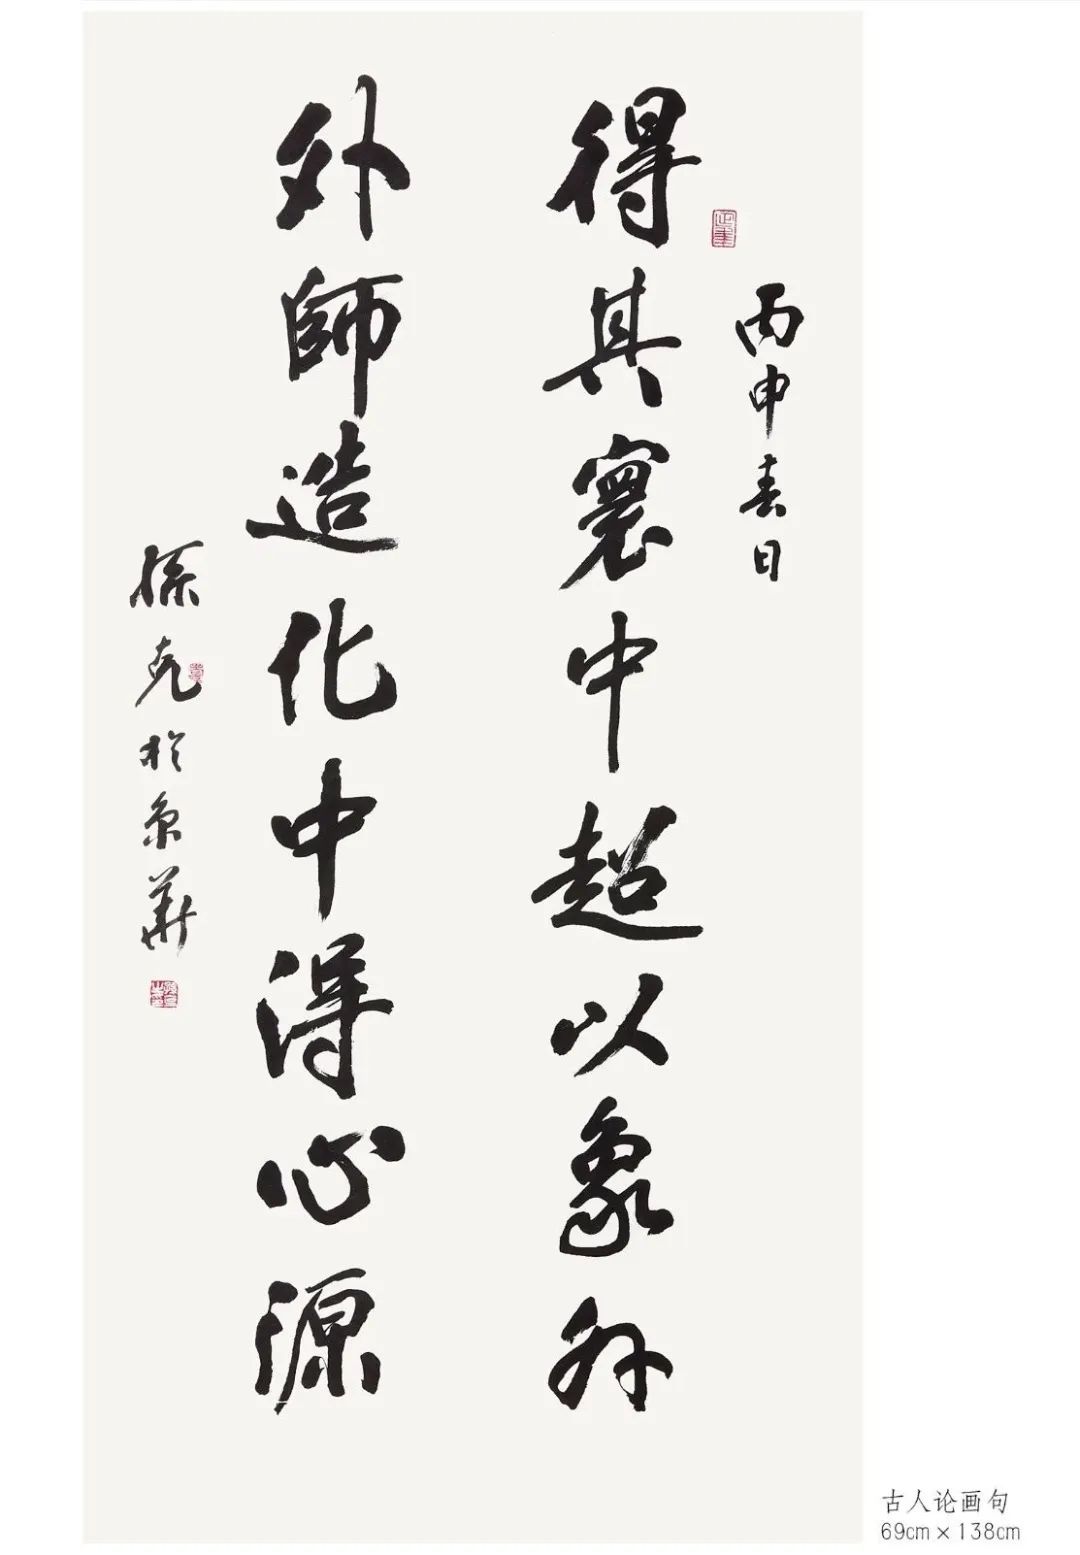 丙申春日
得其寰中超以象外
外師造化中得心源
孫克於京華
古人论画句
69cm×138cm